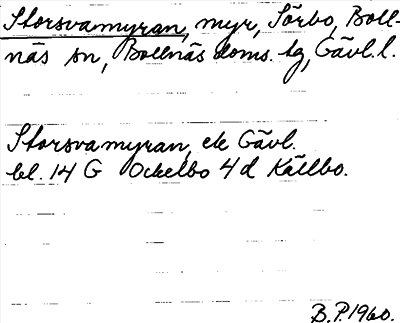 Storsvamyran, myr, Sörbo, Boll-
näs sn, Bollnäs doms. tg, Gävl. l.
Storsvamyran, ek Gävl.
bl. 14 G Ockelbo 4 d Källbo.
B.P. 1960.